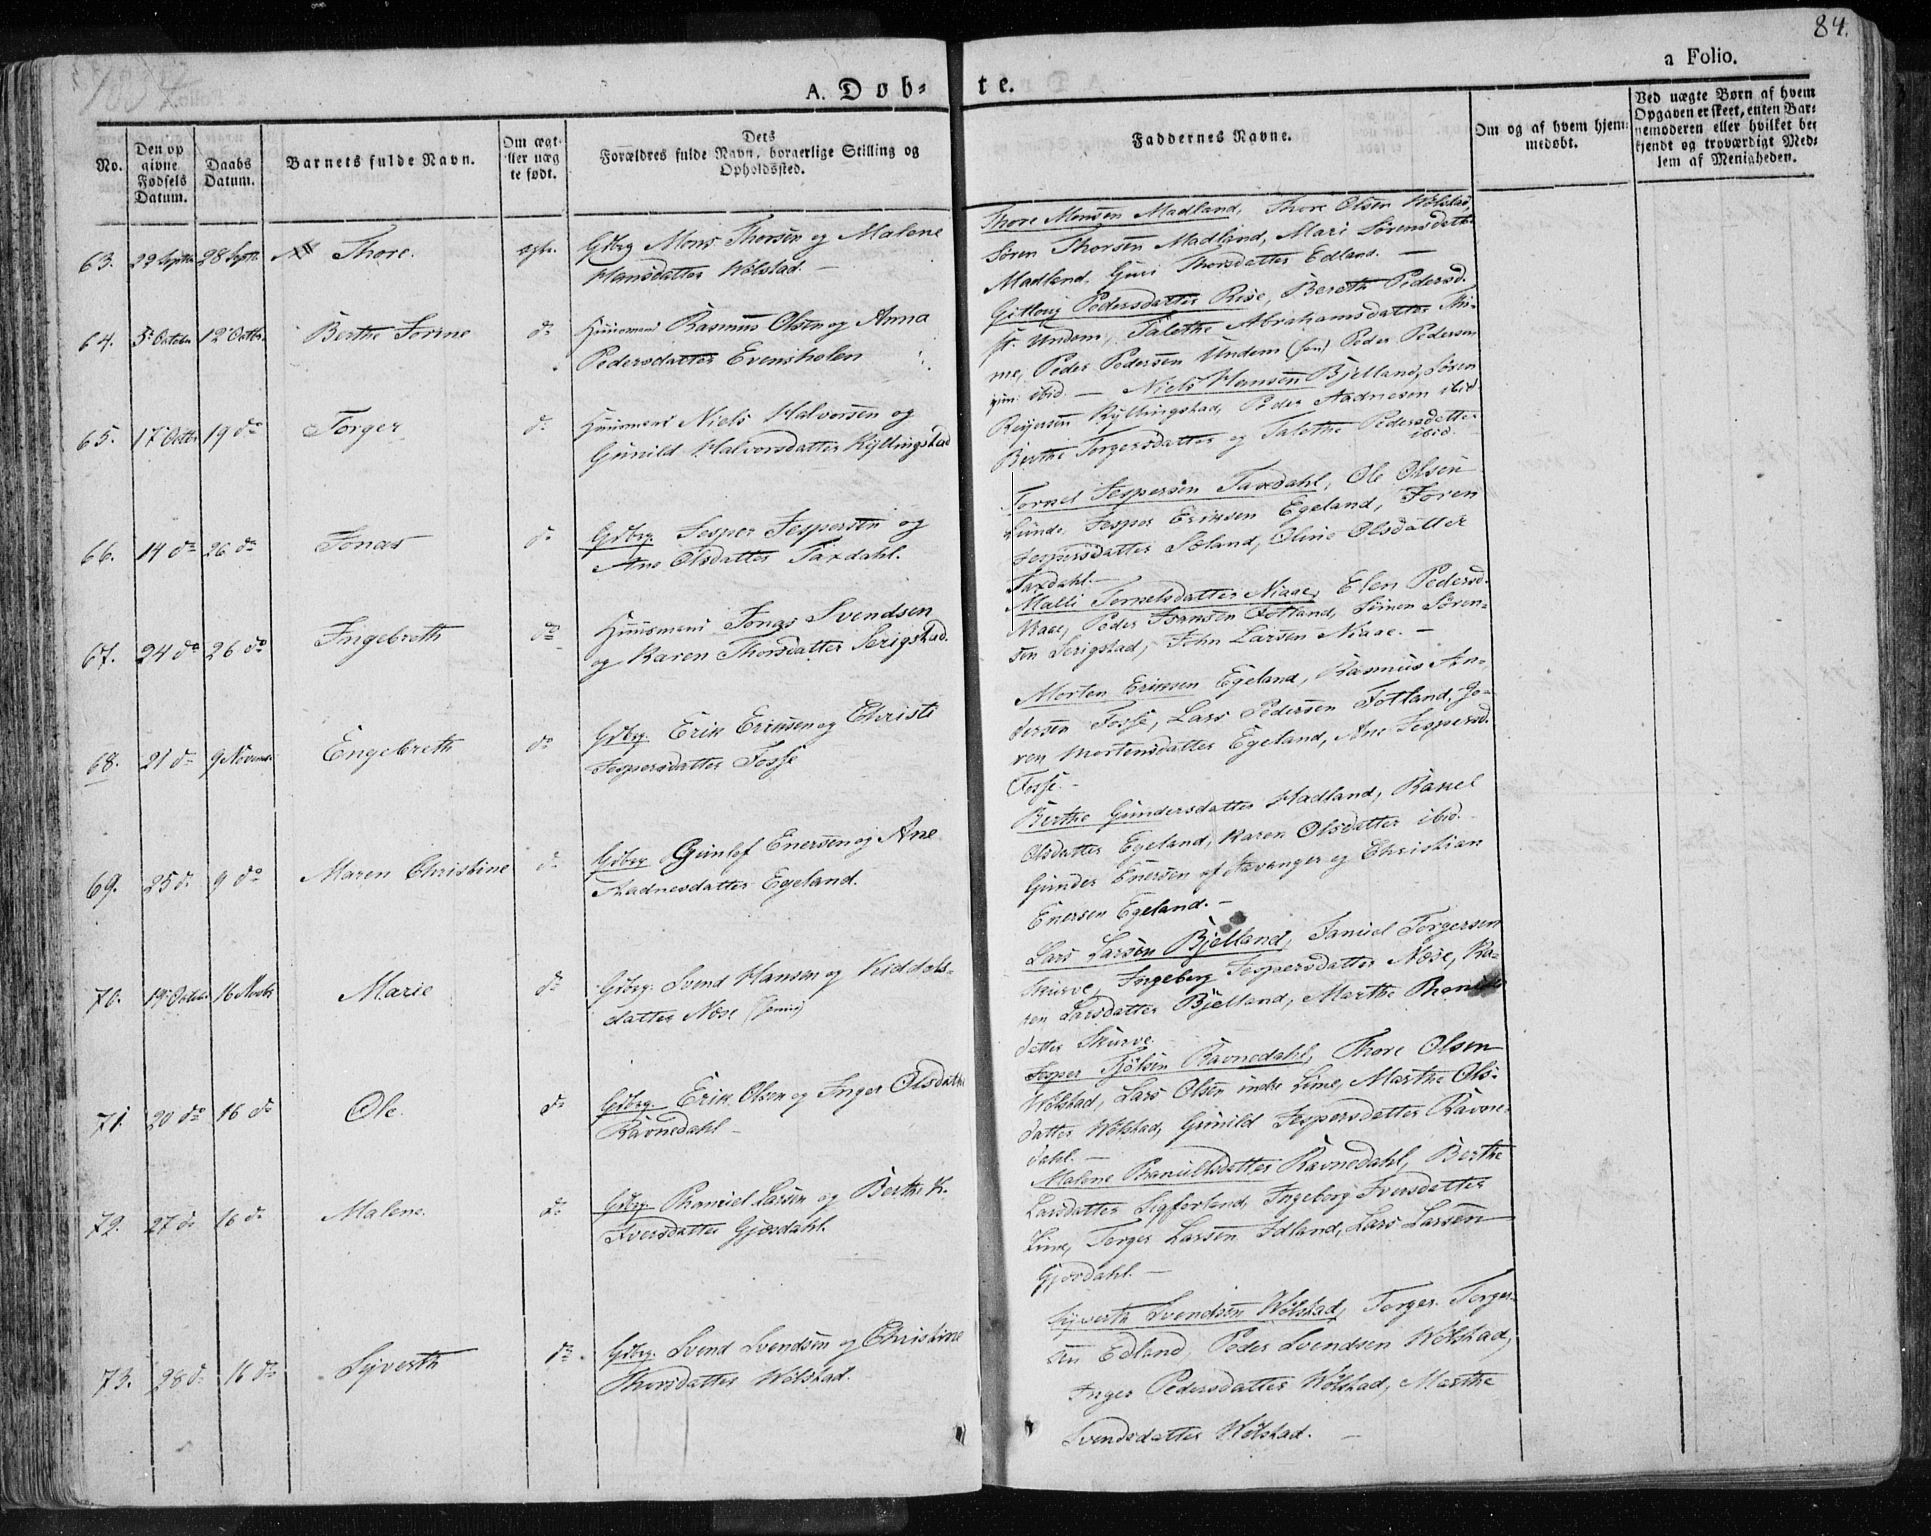 84.
a Folio.
A. Døb-
te.
No.
Den op
givne
Fødsels
Datum.
Daabs
Datum.
Barnets fulde Navn.
Om ægt
ller uæg
te født.
Dets
Forældres fulde Navn, borgerlige Stilling og
Opholdssted.
Faddernes Navne.
Om og af hvem hjem
medøbt.
Ved uægte Børn af hvem
Opgaven er skeet, enten Bar-
nemoderen eller hvilket be
kjendt og troværdigt Med-
lem af Menigheden.
63. 22 Septbr 28 Septbr Thore. egte. Gdbrg Mons Thorsen og Malene
Hansdatter Wølstad. —
Thore Monsen Madland, Thore Olsen Wølstad
Søren Thorsen Madland, Mari Sørensdatter
Madland, Guri Thorsdatter Edland. —
64. 5t October 12t Octbr. Berthe Sørine do Huusmand Rasmus Olsen og Anna
Pedersdatter Evensholen
Gitlovig Pedersdatter Rise, Bereth Pedersd.
st. Undem, Talethe Abrahamsdatter Mi-
me, Peder Pedersen Undem (sen) Peder Pedersen
jun: ibid. —
65. 17t Octbr 19 do Torger do Huusmand Niels Halvorsen og
Gunild Halvorsdatter Kyllingstad
Niels Hansen Bjelland, Søren
Reiersen Kyllingstad, Peder Aadnesen ibid
Berthe Torgersdatter og Talethe Pedersdatter
ibid.
66. 14 do 26 do Jonas do Gdbrg Jesper Jespersen og
Ane Olsdatter Taxdahl.
Tornel Jespersen Taxdahl, Ole Olsen
Lunde, Jesper Eriksen Egeland, Søren
Jespersdatter Sæland, Oline Olsdatter
Taxdahl. —
67. 24 do 26 do Ingebreth do Huusmand Jonas Svendsen
og Karen Thorsdatter Serigstad.
Malli Tornelsdatter Niaae, Elen Pedersd.
Niaae, Peder Hansen Fotland, Simen Søren-
sen Serigstad, John Larsen Niaae. —
68. 21 do 9 Novembr Engebreth do Gdbrg. Erik Eriksen og Christi
Jespersdatter Fosse
Morten Eriksen Egeland, Rasmus An-
dersen Fosse, Lars Pedersen Fotland, Jo-
ren Mortensdatter Egeland, Ane Jespersd.
Fosse. —
69. 25 do 9 do Maren Christine do Gdbrg Gunlef Enersen og Ane
Aadnesdatter Egeland.
Berthe Gundersdatter Hadland, Rakel
Olsdatter Egeland, Karen Olsdatter ibid.
Gunder Enersen af Stavanger og Christian
Enersen Egeland. —
70. 19t October 16 Novbr Marie do Gdbrg. Svend Hansen og Kiddels-
datter Nese
Lars Larsen Bjelland, Samuel Torgersen
Skurve, Ingeborg Jespersdatter Nese, Ka-
ren Larsdatter Bjelland, Marthe
datter Skurve.
71. 20 do 16 do Ole. do Gdbrg. Erik Olsen og Inger Olsdatter
Ravnedahl —
Jesper Tjølsen Ravnedahl, Thore Olsen
Wølstad, Lars Olsen indre Lime, Marthe Ols-
datter Wølstad, Gunild Jespersdatter Ravne-
dahl. —
72. 27 do 16 do Malene. do Gdbrg. Thaniel Larsen og Berthe K.
Iversdatter Gjesdahl.
Malene Thanielsdatter Ravnedahl, Berthe
Larsdatter Sigforland, Ingeborg Iversdatter
Lime, Torger Larsen Edland, Lars Larsen
Gjesdahl. —
73. 28 do 16 do Syverth do Gdbrg. Svend Svendsen og Christine
Thorsdatter Wølstad.
Syverth Svendsen Wølstad, Torger Torger-
sen Edland, Peder Svendsen Wølstad,
Inger Pedersdatter Wølstad, Marthe
Svendsdatter Wølstad. —